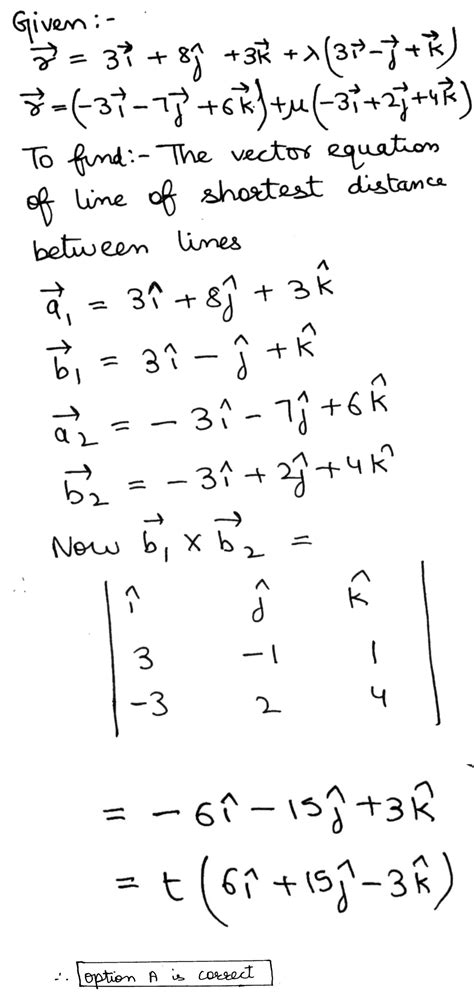 Given:-
r⃗ = 3i⃗ + 8ĵ + 3k⃗ + λ(3i⃗ - j⃗ + k⃗)
r⃗ = (-3i⃗ - 7j⃗ + 6k⃗) + μ(-3i⃗ + 2j⃗ + 4k⃗)
To find:- The vector equation
of line of shortest distance
between lines
a⃗₁ = 3î + 8ĵ + 3k̂
b⃗₁ = 3î - ĵ + k̂
a⃗₂ = - 3î - 7ĵ + 6k̂
b⃗₂ = - 3î + 2ĵ + 4k̂
Now b⃗₁ × b⃗₂ =
| î ĵ k̂ |
| 3 -1 1 |
| -3 2 4 |
= - 6î - 15ĵ + 3k̂
= t (6î + 15ĵ - 3k̂)
∴ option A is correct